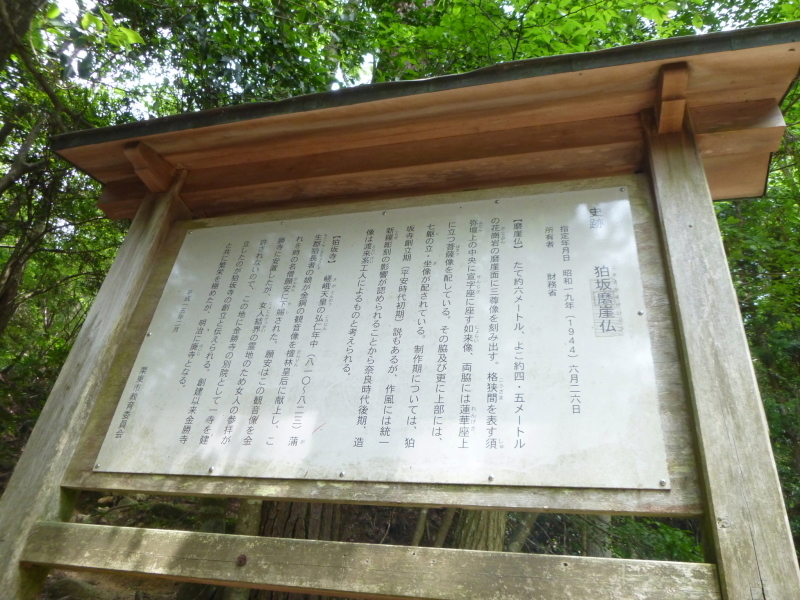 史跡 狛坂磨崖仏
指定年月日 昭和一九年(1944)六月二六日
所有者 財務省
【磨崖仏】 たて約六メートル、よこ約四・五メートル
の花崗岩の磨崖面に三尊像を刻み出す。格狭間を表す須
弥壇上の中央に宣字座に座す如来像、両脇には蓮華座上
に立つ菩薩像を配している。その脇及び更に上部には、
七躯の立・坐像が配されている。制作期については、狛
坂寺創立期(平安時代初期)説もあるが、作風には統一
新羅彫刻の影響が認められることから奈良時代後期、造
像は渡来系工人によるものと考えられる。
【狛坂寺】 嵯峨天皇の弘仁年中(八一〇~八二三)蒲
生郡狛長者の娘が金銅の観音像を檀林皇后に献上し、こ
れを時の名僧願安に下賜された。願安はこの観音像を金
勝寺に安置したが、女人結界の霊地のため女人の参拝が
許されないので、この地に金勝寺の別院として一寺を建
立したのが狛坂寺の創立と伝えられる。創建以来金勝寺
と共に繁栄を極めたが、明治に廃寺となる。
栗東市教育委員会